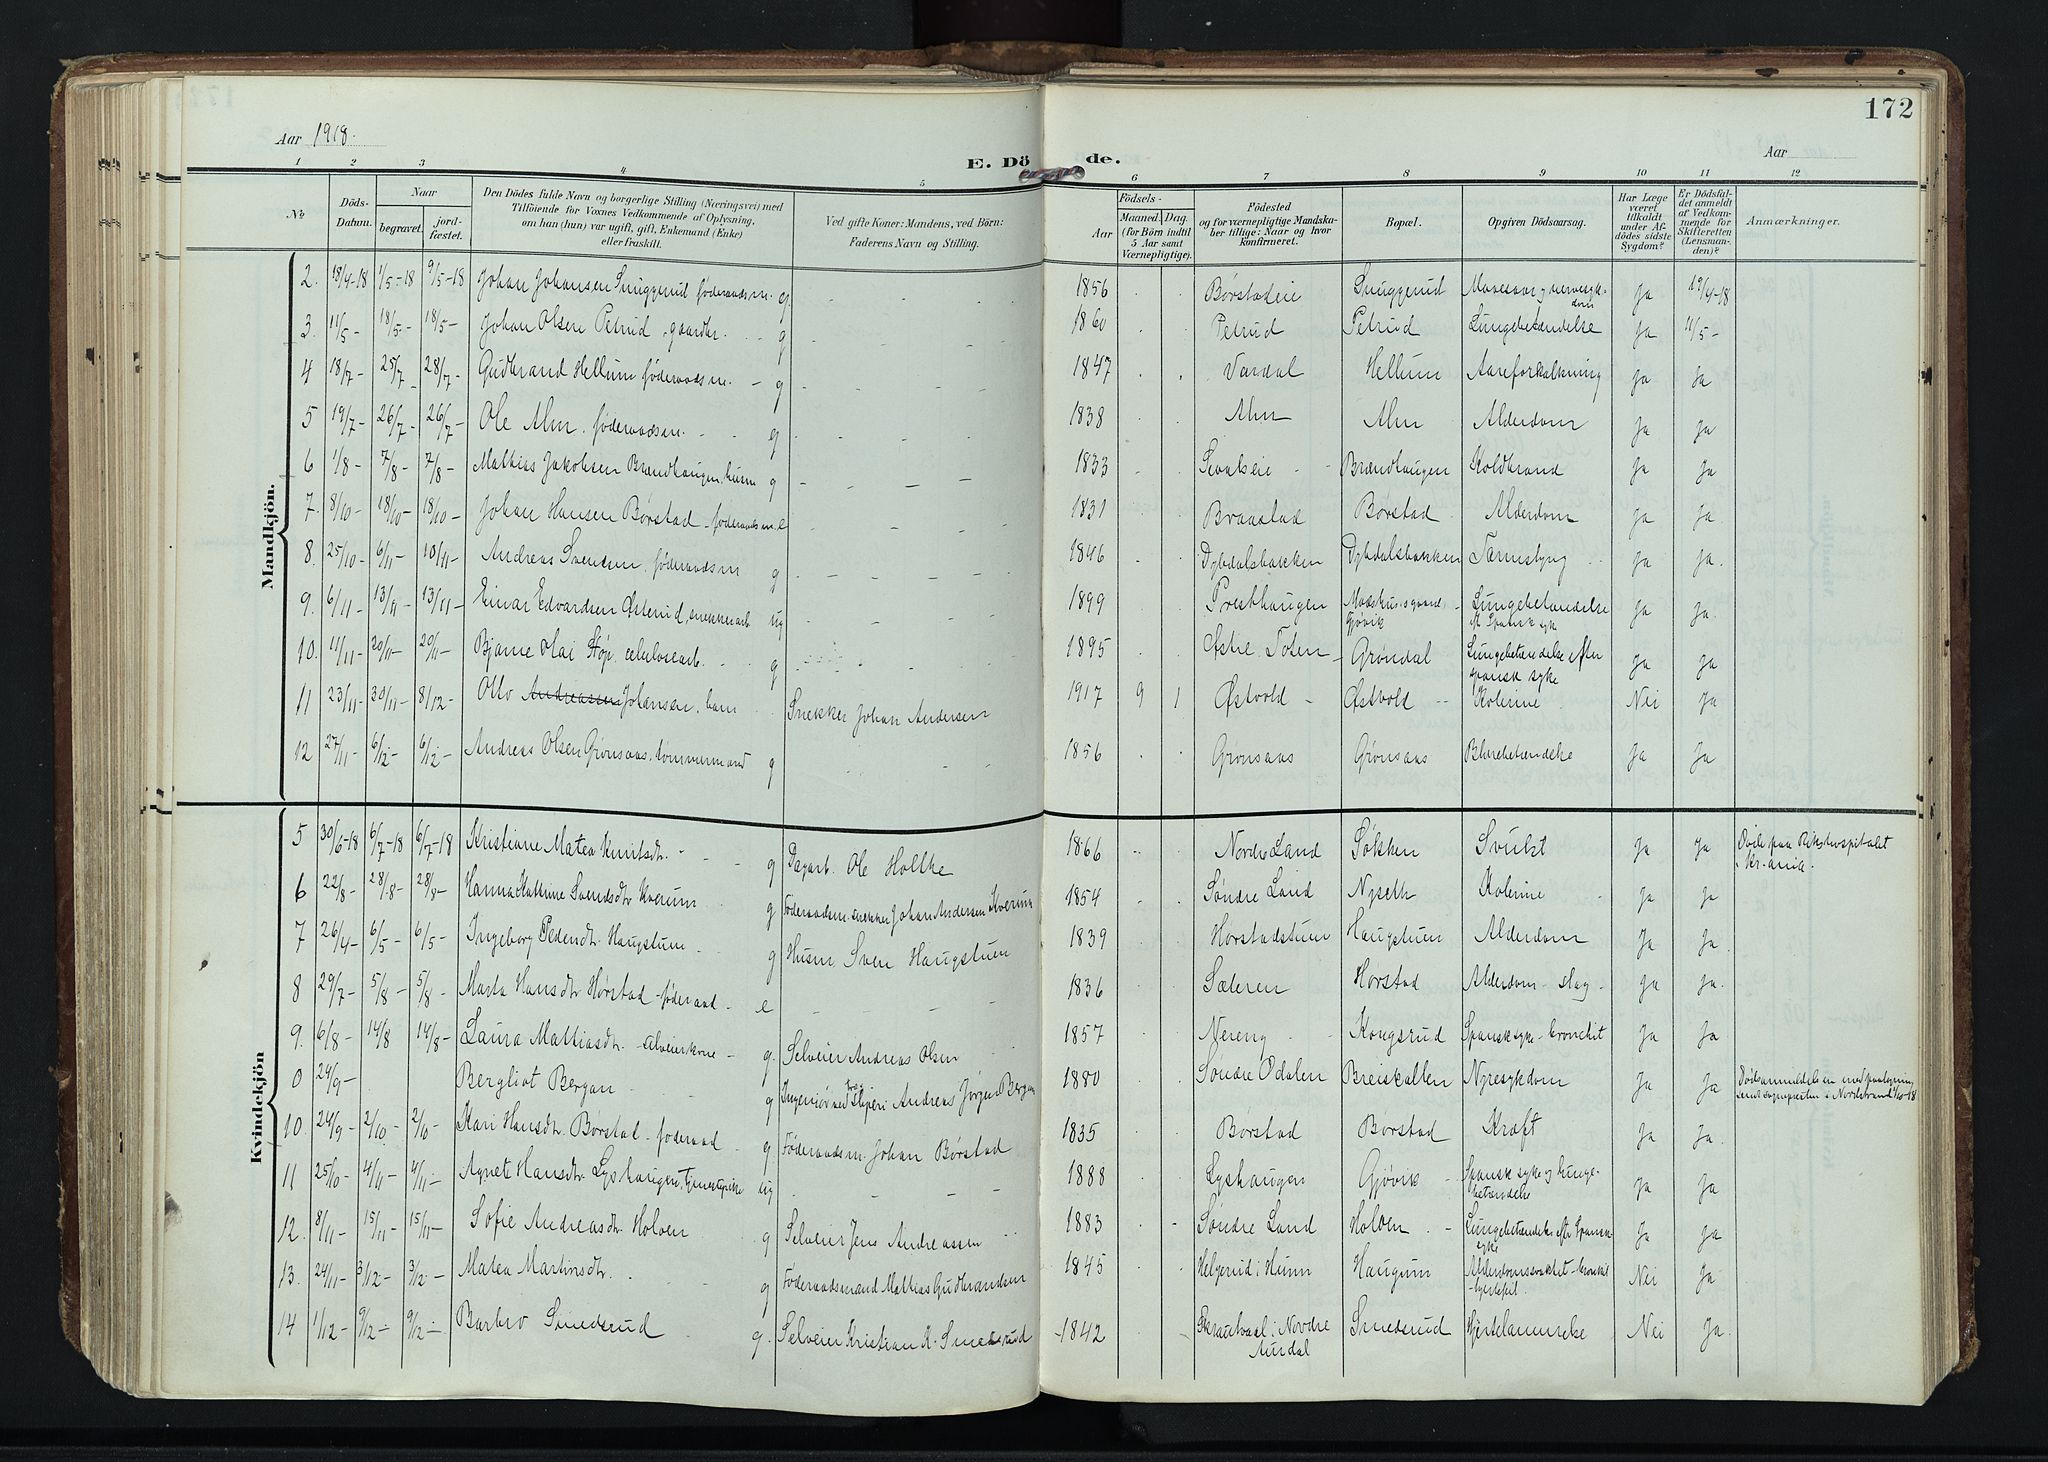 172
Aar 1918.
E. Döde.
Aar
1 2 3 4 5 6 7 8 9 10 11 12
№
Döds-Datum.
Naar
begravet.
jordfæstet.
Den Dödes fulde Navn og borgerlige Stilling (Næringsvei) med
Tilföiende for Voxnes Vedkommende af Oplysning,
om han (hun) var ugift, gift, Enkemand (Enke)
eller fraskilt.
Ved gifte Koner: Mandens, ved Börn:
Faderens Navn og Stilling.
Födsels-
Aar
Maaned. Dag.
(for Börn indtil
5 Aar samt
Værnepligtige).
Födested
og for værnepligtige Mandskaber tillige: Naar og hvor
konfirmeret.
Bopæl.
Opgiven Dödsaarsag.
Har Læge
været
tilkaldt
under Afdödes sidste
Sygdom?
Er Dödsfaldet anmeldt
af Vedkommende for
Skifteretten
(Lensmanden)?
Anmærkninger.
Mandkjön.
2. 18/4-18 1/5-18 9/5-18 Johan Johansen Snuggerud føderaadsm. g 1856 Børstadeie Snuggerud Ja 19/4-18
3. 11/5- 18/5- 18/5- Johan Olsen Petrud, gaardbr. g 1860 Petrud Petrud Lungebetændelse Ja 11/5-
4 18/7- 25/7- 28/7- Gudbrand Hellum føderaadsm. g 1847 Vardal Hellum Aareforkalkning Ja Ja
5 19/7- 26/7- 26/7- Ole Alm, føderaadsm. g 1838 Alm Alm Alderdom Ja Ja
6 1/8- 7/8- 7/8- Mathias Jakobsen Brændhaugen, husm g 1833 Brændhaugen Koldbrand Ja Ja
7. 8/10- 18/10- 18/10- Johan Hansen Børstad - føderaadsm. e 1831 Braastad Børstad Alderdom Ja Ja
8. 25/10- 6/11- 10/11- Andreas Svendsen, føderaadsm g 1846 Dybdalsbakken Dybdalsbakken Tarmslyng Ja Ja.
9. 6/11- 13/11- 13/11- Einar Edvardsen Østerud, snekkerarb. ug 1899 Presthaugen Gjøvik Lungebetændelse eft. Spansk syke Ja Ja.
10. 11/11- 20/11- 20/11- Bjarne Olai Støp, celulosearb. g 1895 Østre Toten - Grøndal Lungebetændelse efter spansk syke Ja Ja
11 23/11- 30/11- 8/12- Otto Andreassen Johansen, barn Snekker Johan Andersen 1917 9 1 Østvold - Østvold - Kolerine Nei Ja
12 27/11- 6/12- 6/12- Andreas Olsen Grønsaas, tømmermand g 1856 Grønsaas Grønsaas Blærebetændelse Ja Ja
Kvindekjön
5 30/6-18 6/7-18 6/7-18 Kristiane Matea Knutsdtr. g Ole Holtke 1866 Nordre Land Søkken Svulst Ja Ja Døde paa Rikshospitalet Kr.ania.
6 22/8- 28/8- 28/8- Hanna Katrine Svendsdtr. Kverum g Føderaadsm. snekker Johan Andersen Kverum 1854 Søndre Land Nyseth Kolerine Ja Ja
7 26/4- 6/5- 6/5- Ingeborg Pedersdtr. Haugstuen g Husm. Sven Haugstuen 1839 Horstadstuen Haugstuen Alderdom Ja Ja.
8 29/7- 5/8- 5/8- Marta Hansdtr. Hørstad - føderaad - e 1836 Sæteren Horstad Alderdom - slag - Ja Ja.
9. 6/8- 14/8 14/8- Laura Mattiasdtr. - g. Selveier Andreas Olsen 1857 Nereng Kongsrud Spansk syke - bronchit Ja Ja
0 24/9- Bergliot Bergan g Andreas Jørgen Bergan 1880 Søndre Odalen Breiskallen Nyresykdom Ja Ja
10. 24/9- 2/10- 2/10- Kari Hansdtr. Børstad - føderaad g Føderaadsm. Johan Børstad 1835 Børstad Børstad Kræft Ja Ja.
11 25/10- 4/11- 4/11- Agnet Hansdtr. Lyshaugen, tjenestepike ug 1888 Lyshaugen Gjøvik - Spansk syke og lungebetændelse Ja Ja
12. 8/11- 15/11- 15/11- Sofie Andreasdtr. Holven g Selveier Jens Andreassen 1883 Søndre Land Holven Lungebetændelse eftr. spansk syke Ja Ja
13. 24/11- 3/12- 3/12- Matea Martinsdtr. g Føderaadsmand Mathias Gudbrandsen 1845 Haugum Nei Ja
14 1/12- 9/12- 9/12- Barbro Smedsrud g. Selveier Kristian K. Smedsrud 1842 Skrautvaal i Nordre Aurdal Smedsrud Hjertelammelse Nei Ja.